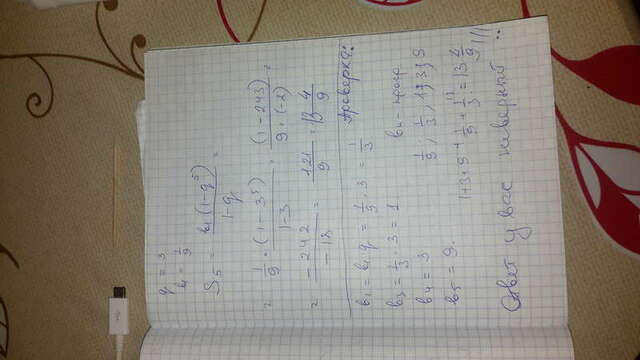 q = 3
b₁ = 1/9
S₅ = b₁(1-q⁵)/(1-q) =
= 1/9 · (1-3⁵)/(1-3) = (1-243)/(9·(-2)) =
= -242/-18 = 121/9 = 13 4/9
Проверка:
b₁ = b₁q = 1/9 · 3 = 1/3
b₃ = 1/3 · 3 = 1
b₄ = 3
b₅ = 9.
bн - прогр
1/9; 1/3; 1; 3; 9
1+3+9+1/9+1/3 = 13 4/9
Ответ у вас неверный!!!